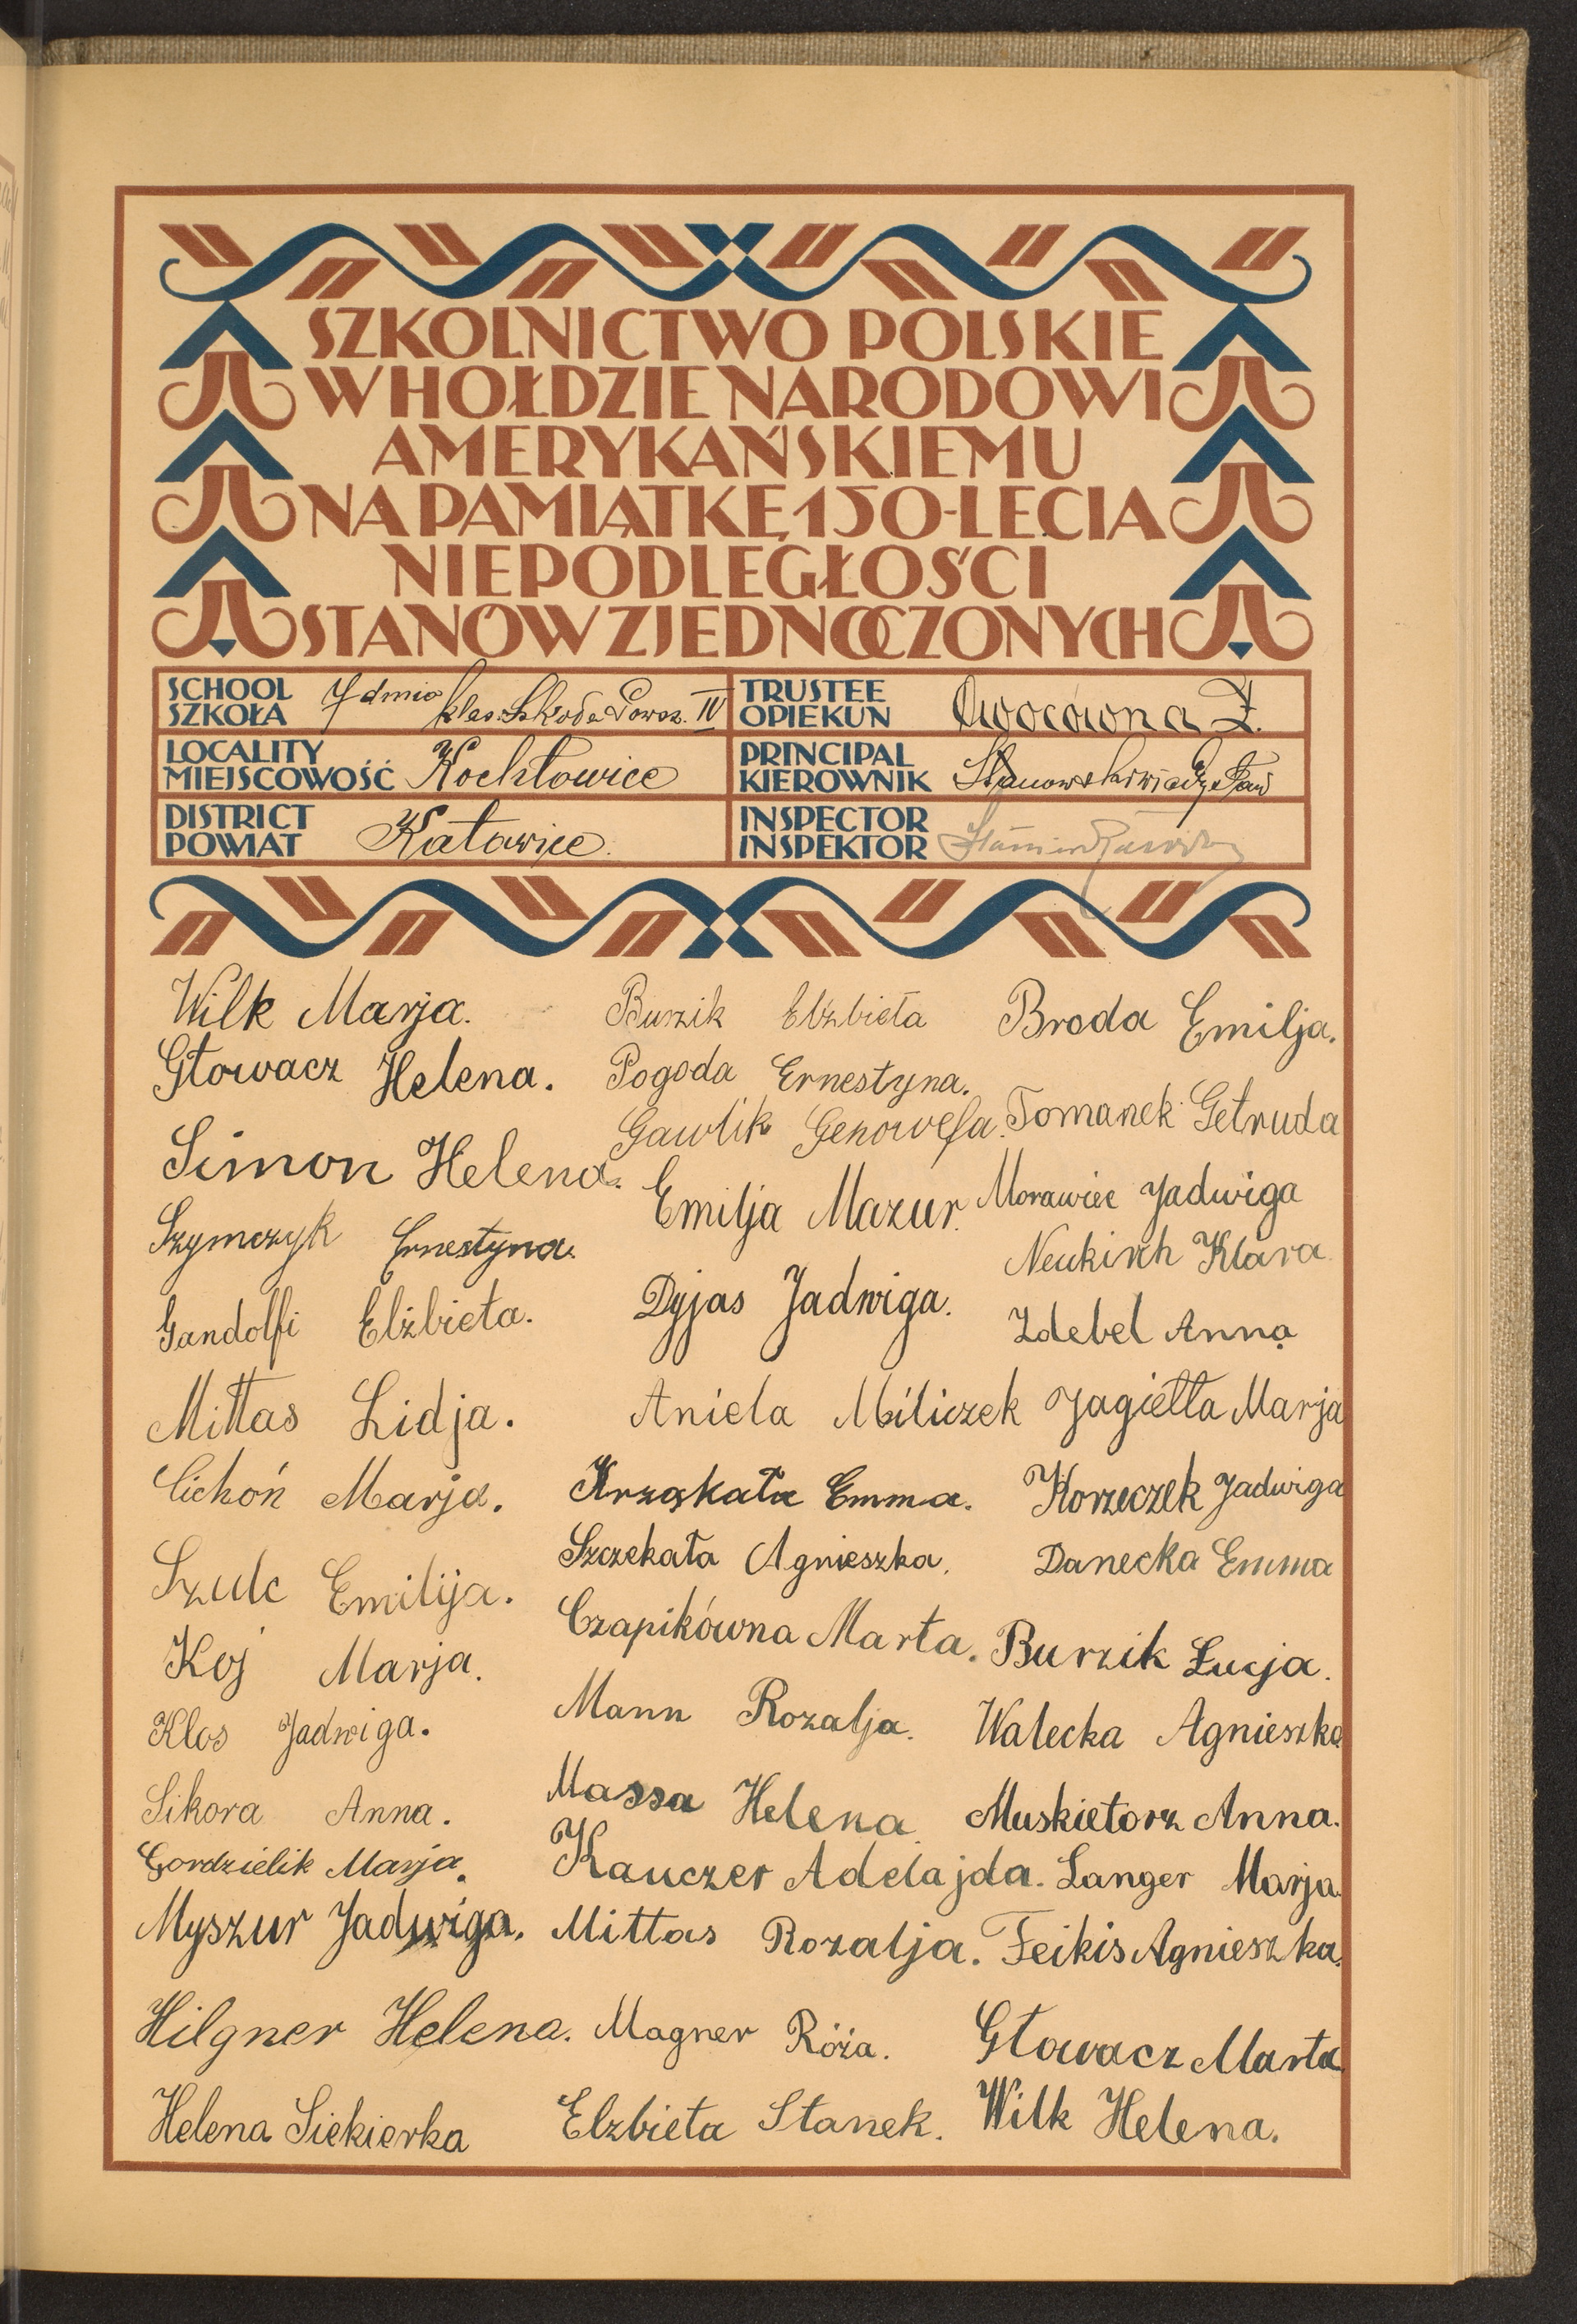 SZKOLNICTWO POLSKIE
W HOŁDZIE NARODOWI
AMERYKAŃSKIEMU
NA PAMIĄTKĘ 150-LECIA
NIEPODLEGŁOŚCI
STANÓW ZJEDNOCZONYCH
SCHOOL
SZKOŁA
7dmio klas. Szkoła Powsz. IV
TRUSTEE
OPIEKUN
Owocówna Z.
LOCALITY
MIEJSCOWOŚĆ
Kochłowice
PRINCIPAL
KIEROWNIK
DISTRICT
POWIAT
Katowice.
INSPECTOR
INSPEKTOR
Wilk Marja.
Głowacz Helena.
Simon Helena.
Szymczyk Ernestyna.
Gandolfi Elżbieta.
Mittas Lidja.
Cichoń Marja.
Szulc Emilija.
Koj Marja.
Klos Jadwiga.
Sikora Anna.
Gordzielik Marja.
Myszur Jadwiga.
Hilgner Helena.
Helena Siekierka
Burzik Elżbieta
Pogoda Ernestyna.
Gawlik Genowefa.
Emilja Mazur.
Dyjas Jadwiga.
Aniela Miliczek
Krząkała Emma.
Szczekała Agnieszka.
Czapikówna Marta.
Mann Rozalja.
Massa Helena
Kauczer Adelajda.
Mittas Rozalja.
Magner Róża.
Elzbieta Stanek.
Broda Emilja.
Tomanek Getruda
Morawiec Jadwiga
Neukirch Klara
Zdebel Anna
Jagiełła Marja
Korzeczek Jadwiga
Danecka Emma
Burzik Łucja.
Walecka Agnieszka
Muskietorz Anna.
Langer Marja.
Feikis Agnieszka.
Głowacz Marta
Wilk Helena.